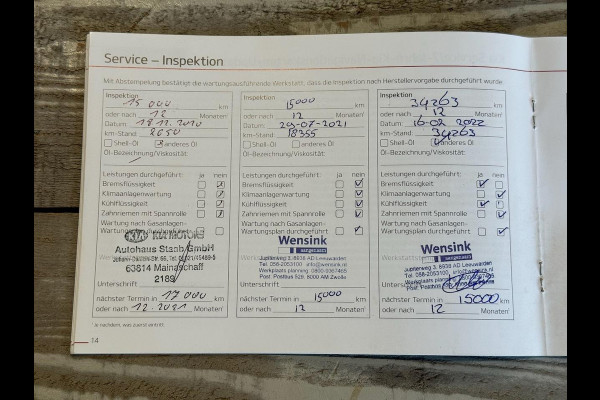 Service – Inspektion
Mit Abstempelung bestätigt die wartungsausführende Werkstatt, dass die Inspektion nach Herstellervorgabe durchgeführt wurde.
Inspektion
15 000 km
oder nach 12 Monaten¹
Datum: 18.11.2020
km-Stand: 2650
Shell-Öl anderes Öl
Öl-Bezeichnung/Viskosität:
Leistungen durchgeführt: ja nein
Bremsflüssigkeit
Klimaanlagenwartung
Kühlflüssigkeit
Zahnriemen mit Spannrolle
Wartung nach Gasanlagen-
Wartungsplan durchgeführt
KIA MOTORS
Autohaus Staab GmbH
63814 Mainaschaff
2189
Unterschrift
nächster Termin in 17 000 km
oder nach 12.2021 Monaten¹
Inspektion
15000 km
oder nach 12 Monaten¹
Datum: 29-07-2021
km-Stand: 18355
Shell-Öl anderes Öl
Öl-Bezeichnung/Viskosität:
Leistungen durchgeführt: ja nein
Bremsflüssigkeit
Klimaanlagenwartung
Kühlflüssigkeit
Zahnriemen mit Spannrolle
Wartung nach Gasanlagen-
Wartungsplan durchgeführt
Wensink
Jupiterweg 3, 8938 AD Leeuwarden
Tel. 058-2053100 info@wensink.nl
Werkplaats planning: 0800-9367465
Post: Postbus 529, 8000 AM Zwolle
Unterschrift
nächster Termin in 15000 km
oder nach 12 Monaten¹
Inspektion
34263 km
oder nach 12 Monaten¹
Datum: 16-02 2022
km-Stand: 34263
Shell-Öl anderes Öl
Öl-Bezeichnung/Viskosität:
Leistungen durchgeführt: ja nein
Bremsflüssigkeit
Klimaanlagenwartung
Kühlflüssigkeit
Zahnriemen mit Spannrolle
Wartung nach Gasanlagen-
Wartungsplan durchgeführt
Wensink
Jupiterweg 3, 8938 AD Leeuwarden
Tel. 058-2053100
Werkplaats planning
Unterschrift
nächster Termin in 15000 km
oder nach 12 Monaten¹
¹ Je nachdem, was zuerst eintritt.
14